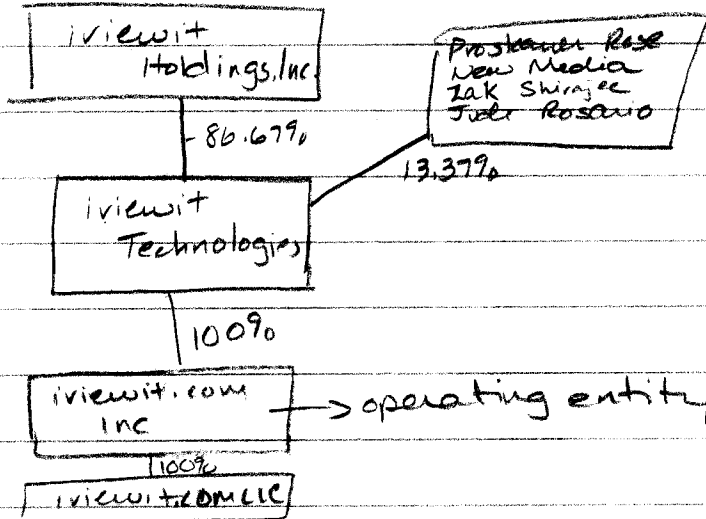 iviewit
Holdings, Inc.
Proskauer Rose
New Media
Zak Shirajee
Jude Rosario
86.67%
13.37%
iviewit
Technologies
100%
iviewit.com
inc
operating entity
100%
iviewit.COM LLC